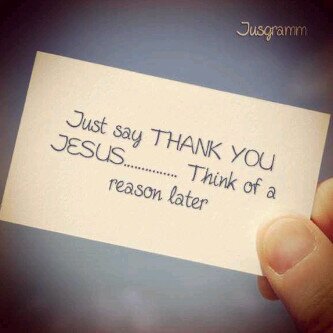 Jusgramm
Just say THANK YOU
JESUS............... Think of a
reason later